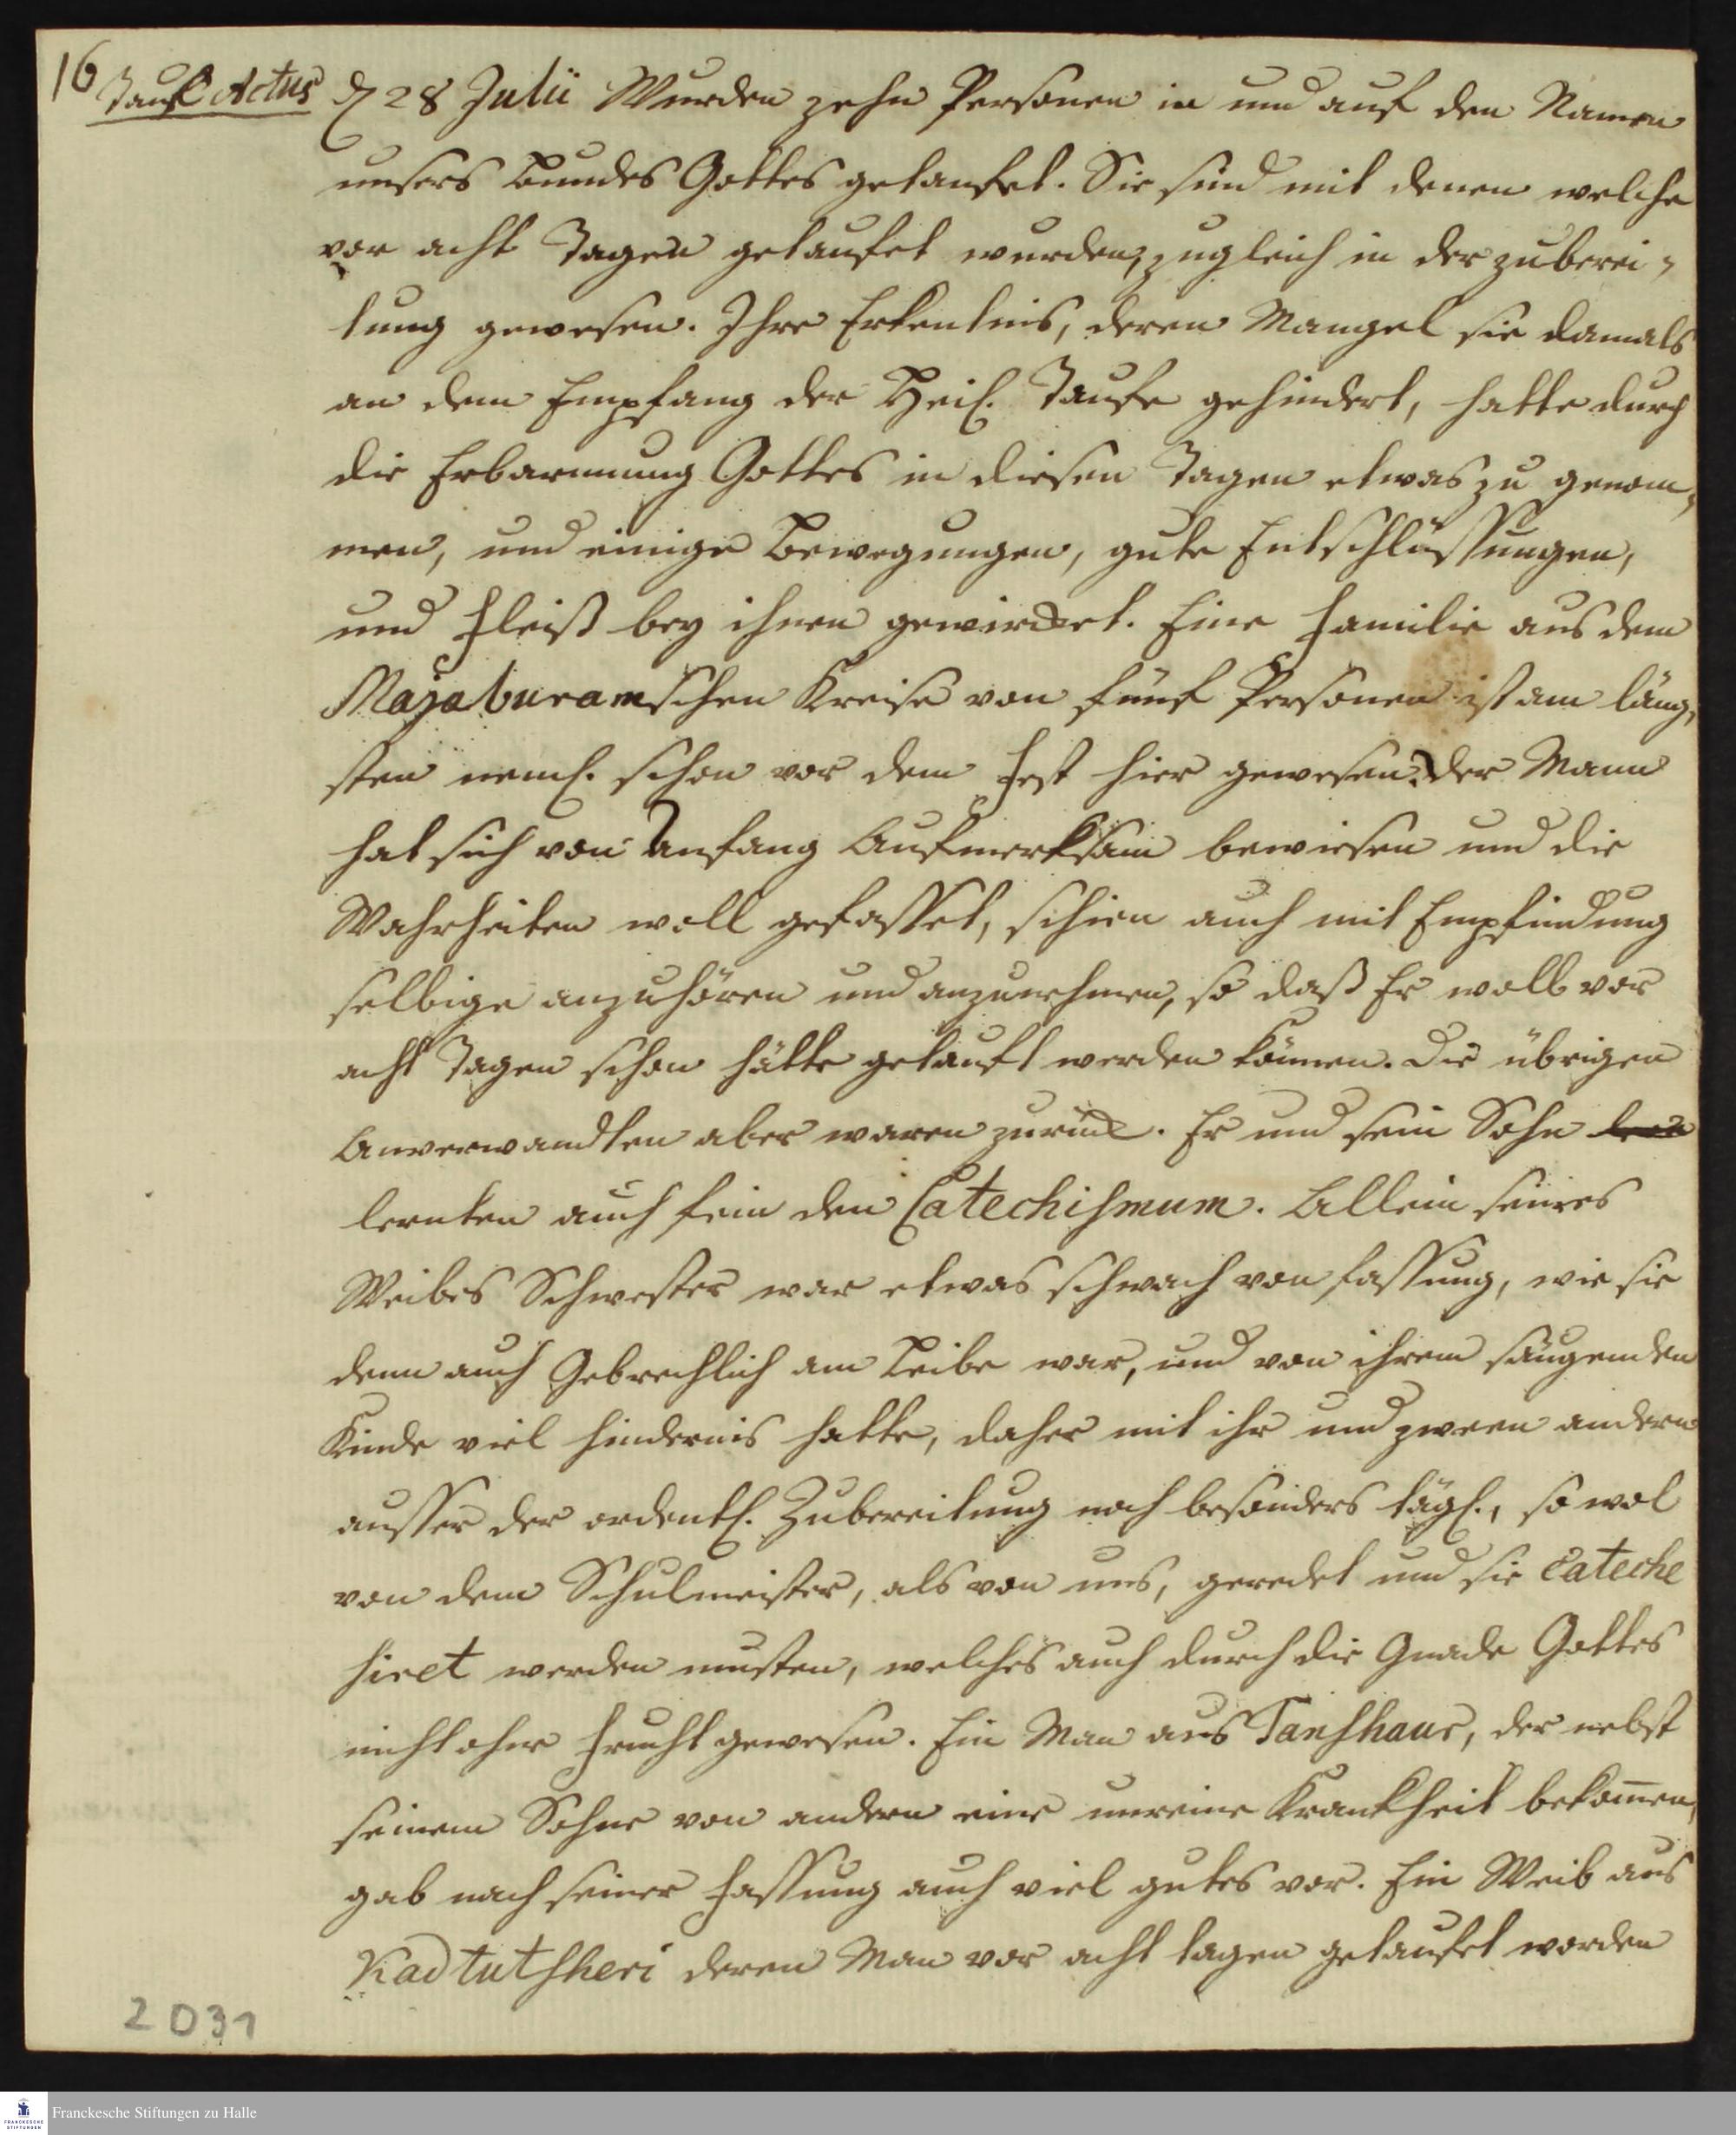 16
Tauf Actus
d. 28 Julii Wurden zehn Personen in und auf den Namen
unsers Bundes Gottes getaufet. Sie sind mit denen welche
vor acht Tagen getaufet wurden, zugleich in der zuberei-
tung gewesen. Ihre Erkentnis, deren Mangel sie damals
an dem Empfang der Heil. Taufe gehindert, hatte durch
die Erbarmung Gottes in diesen Tagen etwas zu genom-
men, und einige Bewegungen, gute Entschlüssungen,
und Fleiß bey ihnen gewircket. Eine Familie aus dem
Majaburamschen Kreise von fünf Personen ist am läng-
sten neml. schon vor dem Fest hier gewesen. der Mann
hat sich von Anfang Aufmerksam bewiesen und die
Wahrheiten woll gefasset, schien auch mit Empfindung
selbige anzuhören und anzunehmen, so daß Er woll vor
acht Tagen schon hätte getauft werden können. Die übrigen
Anverwandten aber waren zurück. Er und sein Sohn
lernten auch fein den Catechismum. Allein seines
Weibes Schwester war etwas schwach von fassung, wie sie
denn auch Gebrechlich am Leibe war, und von ihrem säugenden
Kinde viel hindernis hatte, daher mit ihr und zween andern
ausser der ordentl. Zubereitung noch besonders tägl., so wol
von dem Schulmeister, als von uns, geredet und sie Cateche
siret werden musten, welches auch durch die Gnade Gottes
nicht ohne Frucht gewesen. Ein Man aus Tanshaur, der nebst
seinem Sohne von andern eine unreine Krankheit bekom̄en,
gab nach seiner Fassung auch viel gutes vor. Ein Weib aus
Kadtutsheri deren Man vor acht tagen getaufet worden
2031
Franckesche Stiftungen zu Halle
FRANCKESCHE
STIFTUNGEN